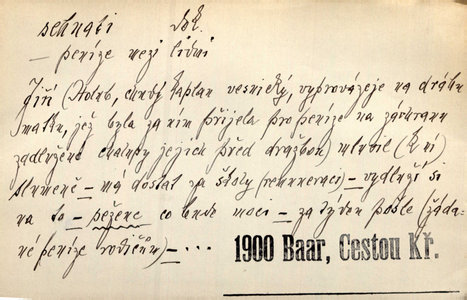 sehnati dok.
– peníze mezi lidmi
Jiří Holub, chudý kaplan vesnický, vyprovázeje na dráhu
matku, jež byla za ním přijela pro peníze na záchranu
zadlužené chalupy jejich před dražbou mluvil (k ní)
sluneně – má dostat za štoly (remuneraci) – vydluží si
na to – sežene co bude moci – za týden pošle (žáda-
né peníze rodičům) – ...
1900 Baar, Cestou Kř.